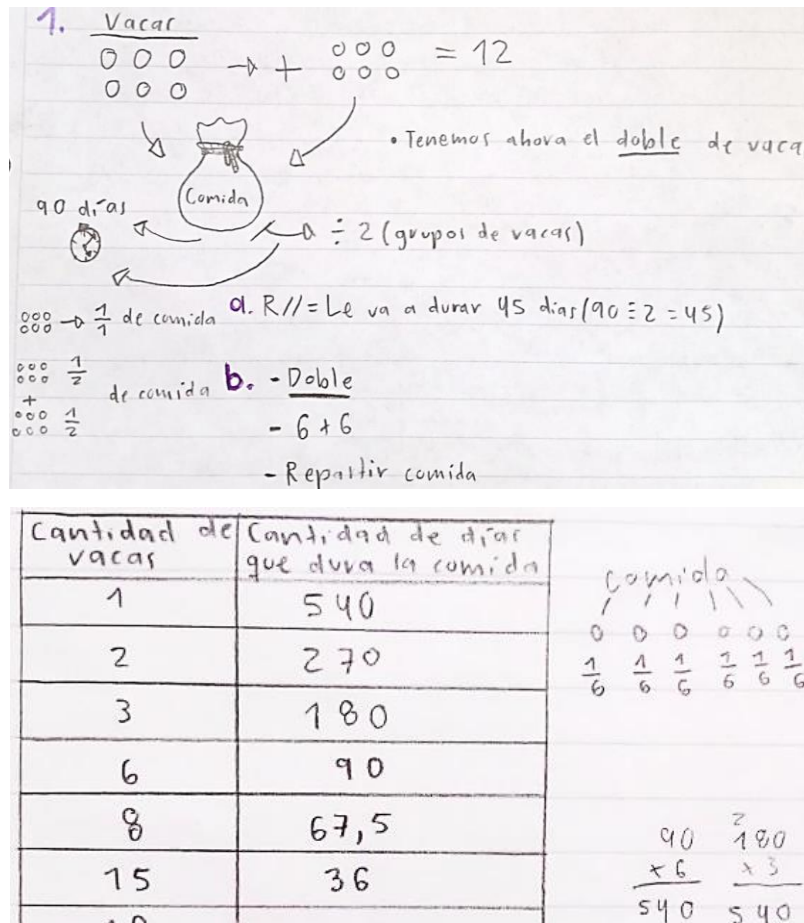 1. Vacas
→ + = 12
• Tenemos ahora el doble de vaca
Comida
90 días
÷ 2 (grupos de vacas)
→ 1/1 de comida
a. R//= Le va a durar 45 dias (90 ÷ 2 = 45)
1/2
+
1/2
de comida
b. - Doble
- 6 + 6
- Repartir comida
Cantidad de vacas | Cantidad de días que dura la comida
1 | 540
2 | 270
3 | 180
6 | 90
8 | 67,5
15 | 36
comida
1/6 1/6 1/6 1/6 1/6 1/6
90
x 6
540
2
180
x 3
540